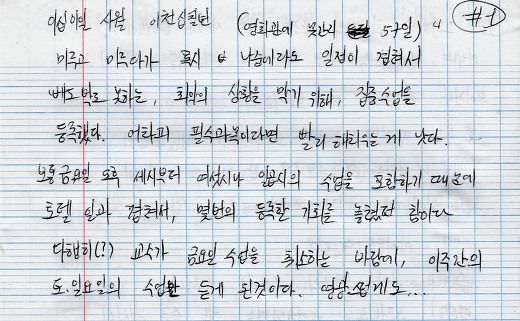 이십이일 사월 이천십칠년 (영화관에 못간지 57일) #1
미루고 미루다가 혹시 나중에라도 일정이 겹쳐서
빼도박도 못하는, 최악의 상황을 막기 위해, 집중수업을
등록했다. 어타피 필수과목이라면 빨리 해치우는 게 낫다.
보통 금요일 오후 세시부터 여섯시나 일곱시의 수업을 포함하기 때문에
토텔 일과 겹쳐서, 몇번의 등록할 기회를 놓쳤던 참이다
다행히(?) 교수가 금요일 수업을 취소하는 바람에, 이주간의
토.일요일의 수업만 듣게 된것이다. 영광스럽게도...